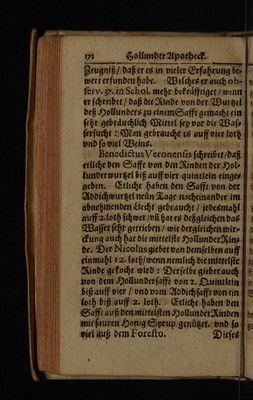 172 Hollunder Apotheck.
Zeugniß / daß er es in vieler Erfahrung be-
wert erfunden habe. Welches er auch ob-
serv. 37. in Schol. mehr bekräfftiget / wenn
er schreibet / daß die Rinde von der Wurtzel
deß Hollunders zu einem Safft gemacht ein
sehr gebräuchlich Mittel sey vor die Was-
sersucht : Man gebrauche es auff vier loth
und so viel Weins.
Benedictus Veronensis schreibet / daß
etliche den Safft von den Rinden der Hol-
lunderwurtzel biß auff vier quintelein einge-
geben. Etliche haben den Safft von der
Addichwurtzel neün Tage nacheinander im
abnehmenden Liecht gebraucht / jedesmahl
auff 2. loth schwer / uñ hat es deßgleichen das
Wasser sehr getrieben / wie dergleichen wir-
ckung auch hat die mittelste Hollunder Rin-
de. Der Nicolus giebet von demselben auff
einmahl 12. loth / wenn nemlich die mittelste
Rinde gekocht wird : Derselbe giebet auch
von dem Hollundersafft von 2. Quintlein
biß auff vier / und vom Addichsafft von ein
loth biß auff 2. loth. Etliche haben den
Safft auß den mittelsten Hollunder Rinden
mit saurem Honig Syrup genützet. und so
viel auß dem Foresto. Dieses